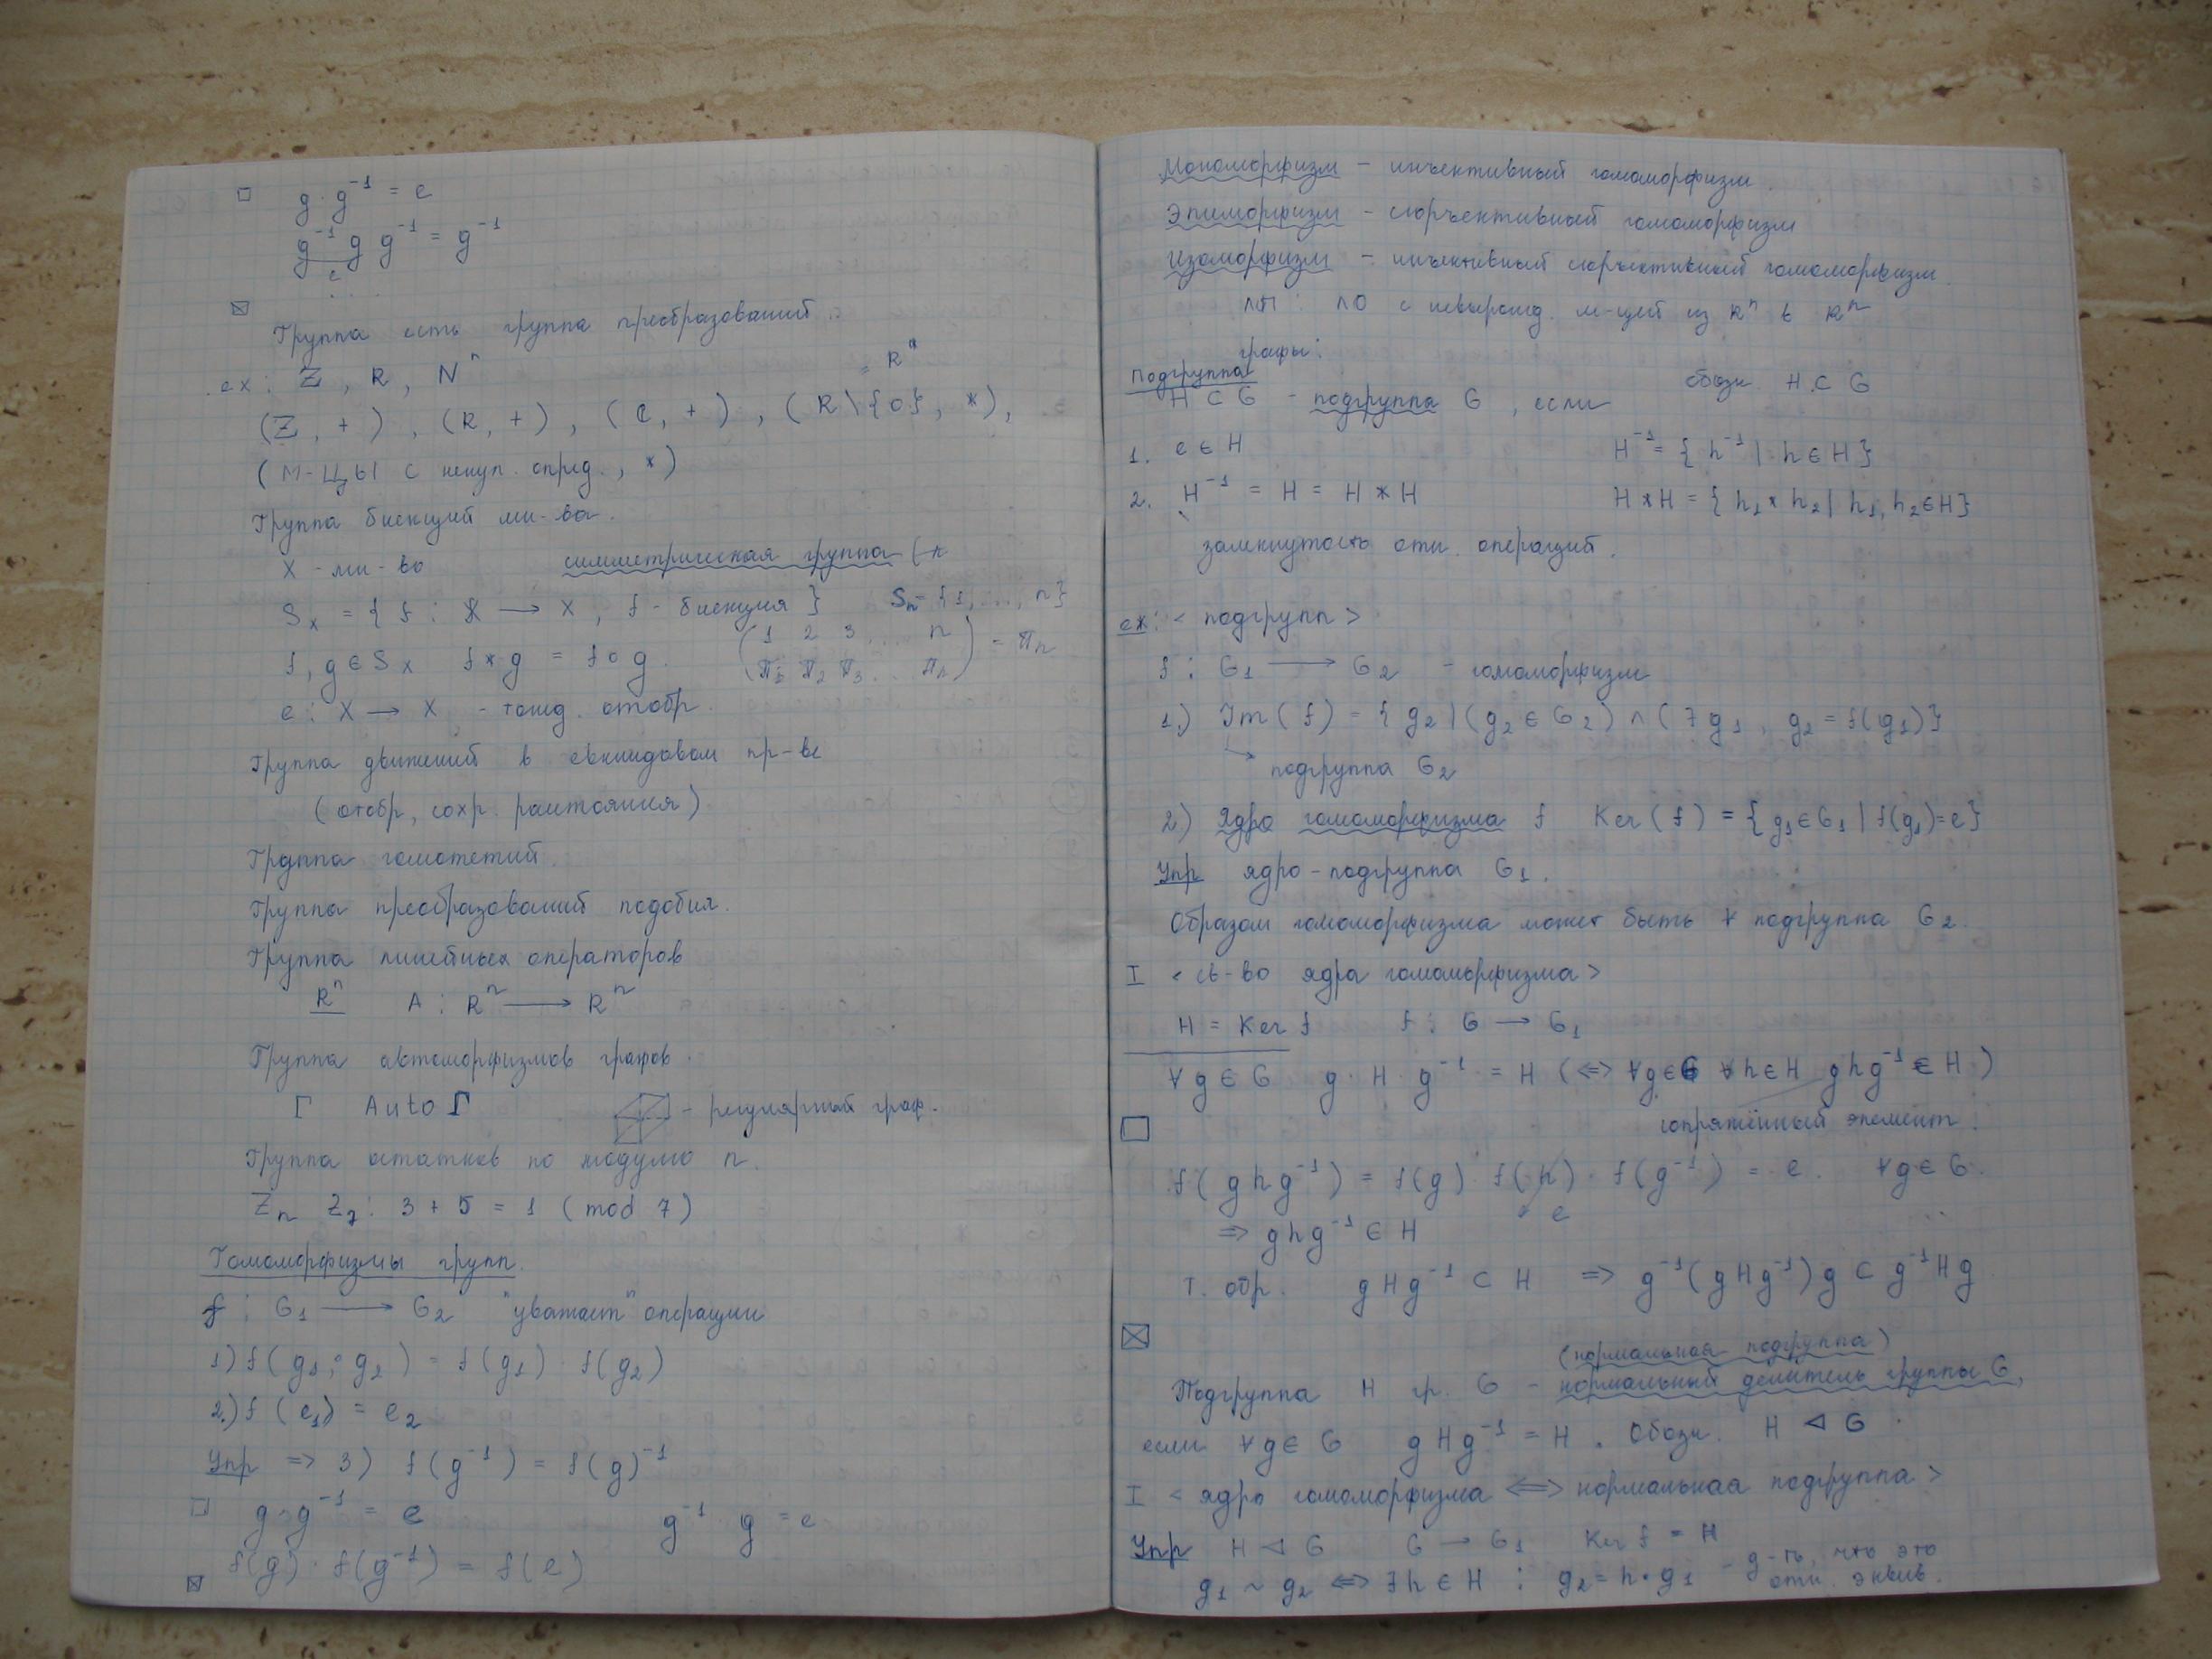 □ g · g⁻¹ = e
g⁻¹ g g⁻¹ = g⁻¹
e
⊠
Группа есть группа преобразований.
ex: Z, R, Nⁿ
(Z, +), (R, +), (C, +), (R\{0}, *),
= R*
(м-цы с ненул. опред., *)
Группа биекций мн-ва.
X - мн-во симметрическая группа
Sₓ = { f : X → X, f - биекция } Sₙ = {1, ..., n}
f, g ∈ Sₓ f * g = f ∘ g.
(1 2 3 ... n) = πₙ
(π₁ π₂ π₃ ... πₙ)
e : X → X - тожд. отобр.
Группа движений в евклидовом пр-ве
(отобр, сохр. расстояния)
Группа гомотетий.
Группа преобразований подобия.
Группа линейных операторов
Rⁿ A : Rⁿ → Rⁿ
Группа автоморфизмов графов.
Γ Auto Γ - регулярный граф.
Группа остатков по модулю n.
Zₙ Z₇ : 3 + 5 = 1 (mod 7)
Гомоморфизмы групп.
f : G₁ → G₂ "уважает" операции
1) f(g₁ · g₂) = f(g₁) · f(g₂)
2) f(e₁) = e₂
Упр ⇒ 3) f(g⁻¹) = f(g)⁻¹
□ g · g⁻¹ = e g⁻¹ g = e
f(g) · f(g⁻¹) = f(e)
⊠
Мономорфизм - инъективный гомоморфизм.
Эпиморфизм - сюръективный гомоморфизм
Изоморфизм - инъективный сюръективный гомоморфизм.
ЛП: ЛО с невырожд. м-цей из Rⁿ в Rⁿ
графы:
Подгруппа
H ⊂ G - подгруппа G, если обозн. H ⊂ G
1. e ∈ H H⁻¹ = { h⁻¹ | h ∈ H }
2. H⁻¹ = H = H * H H * H = { h₁ * h₂ | h₁, h₂ ∈ H }
замкнутость отн. операций.
ex: < подгрупп >
f : G₁ → G₂ - гомоморфизм
1.) Im(f) = { g₂ | (g₂ ∈ G₂) ∧ (∃ g₁, g₂ = f(g₁)}
подгруппа G₂
2) Ядро гомоморфизма f Ker(f) = { g₁ ∈ G₁ | f(g₁) = e }
Упр ядро - подгруппа G₁.
Образом гомоморфизма может быть ∀ подгруппа G₂.
I < св-во ядра гомоморфизма >
H = Ker f f : G → G₁
∀ g ∈ G g · H · g⁻¹ = H (⇔ ∀g ∈ G ∀h ∈ H ghg⁻¹ ∈ H)
сопряжённый элемент.
□
f(ghg⁻¹) = f(g) · f(h) · f(g⁻¹) = e. ∀g ∈ G.
e
⇒ ghg⁻¹ ∈ H
Т. обр. gHg⁻¹ ⊂ H ⇒ g⁻¹(gHg⁻¹)g ⊂ g⁻¹Hg
⊠
(нормальная подгруппа)
Подгруппа H гр. G - нормальный делитель группы G,
если ∀g ∈ G gHg⁻¹ = H. Обозн. H ⊲ G.
I < ядро гомоморфизма ⇔ нормальная подгруппа >
Упр H ⊲ G G → G₁ Ker f = H
g₁ ~ g₂ ⇔ ∃h ∈ H : g₂ = h · g₁ - д-ть, что это
отн. эквив.